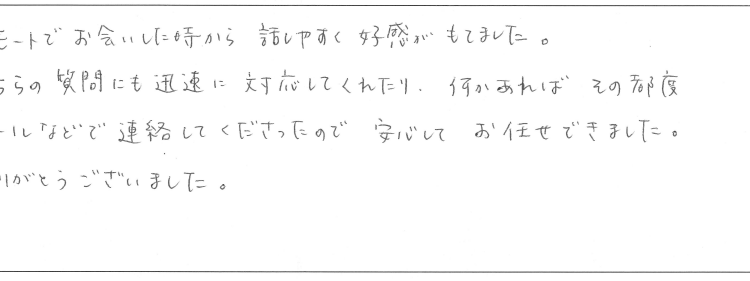 モートでお会いした時から 話しやすく 好感が もてました。
ちらの質問にも迅速に 対応してくれたり、何かあれば その都度
ールなどで連絡してくださったので 安心して お任せできました。
りがとうございました。